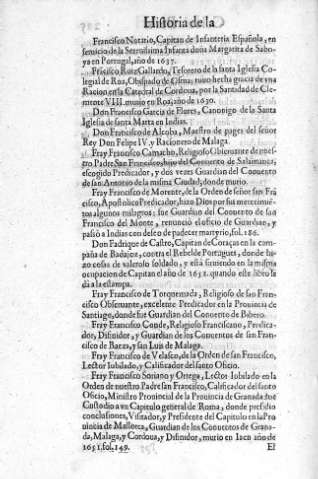 Historia de la
Francisco Notario, Capitan de Infanteria Española, en
seruicio de la Serenissima Infanta doña Margarita de Sabo-
ya en Portugal, año de 1637.
Francisco Ruiz Gallardo, Tesorero de la santa Iglesia Co-
legial de Roa, Obispado de Osma, tuuo hecha gracia de vna
Racion en la Catedral de Cordoua, por la Santidad de Cle-
mente VIII. murio en Roa, año de 1630.
Don Francisco Garcia de Flores, Canonigo de la Santa
Iglesia de santa Marta en Indias.
Don Francisco de Alcoba, Maestro de pages del señor
Rey Don Felipe IV. y Racionero de Malaga.
Fray Francisco Camacho, Religioso Obseruante de nues-
tro Padre San Francisco, hijo del Conuento de Salamanca,
escogido Predicador, y dos vezes Guardian del Conuento
de san Antonio de la misma Ciudad, donde murio.
Fray Francisco de Morente, de la Orden de señor san Fri
cisco, Apostolico Predicador, hizo Dios por sus merecimiē-
tos algunos milagros; fue Guardian del Conuento de san
Francisco del Monte, renunciò el oficio de Guardian, y
passò a Indias con deseo de padecer martyrio, fol. 186.
Don Fadrique de Castro, Capitan de Coraças en la cam-
paña de Badajoz, contra el Rebelde Portugues, donde ha-
zo cosas de valeroso soldado, y està siruiendo en la misma
ocupacion de Capitan el año de 1651. quando este libro se
dà a la estampa.
Fray Francisco de Torquemada, Religioso de san Fran-
cisco Obseruante, excelente Predicador en la Prouincia de
Santiago, donde fue Guardian del Conuento de Bibero.
Fray Francisco Conde, Religioso Franciscano, Predica-
dor, Difinidor, y Guardian de los Conuentos de san Fran-
cisco de Baeza, y san Luis de Malaga.
Fray Francisco de Velasco, de la Orden de san Francisco,
Lector Iubilado, y Calificador del santo Oficio.
Fray Francisco Soriano y Ortega, Lector Iubilado en la
Orden de nuestro Padre san Francisco, Calificador del santo
Oficio, Ministro Prouincial de la Prouincia de Granada fue
Custodio a vn Capitulo general de Roma, donde presidio
conclusiones, Visitador, y Presidente del Capitulo en la Pro
uincia de Mallorca, Guardian de los Conuentos de Grana-
da, Malaga, y Cordoua, y Difinidor, murio en Iaen año de
1651. fol. 149. El